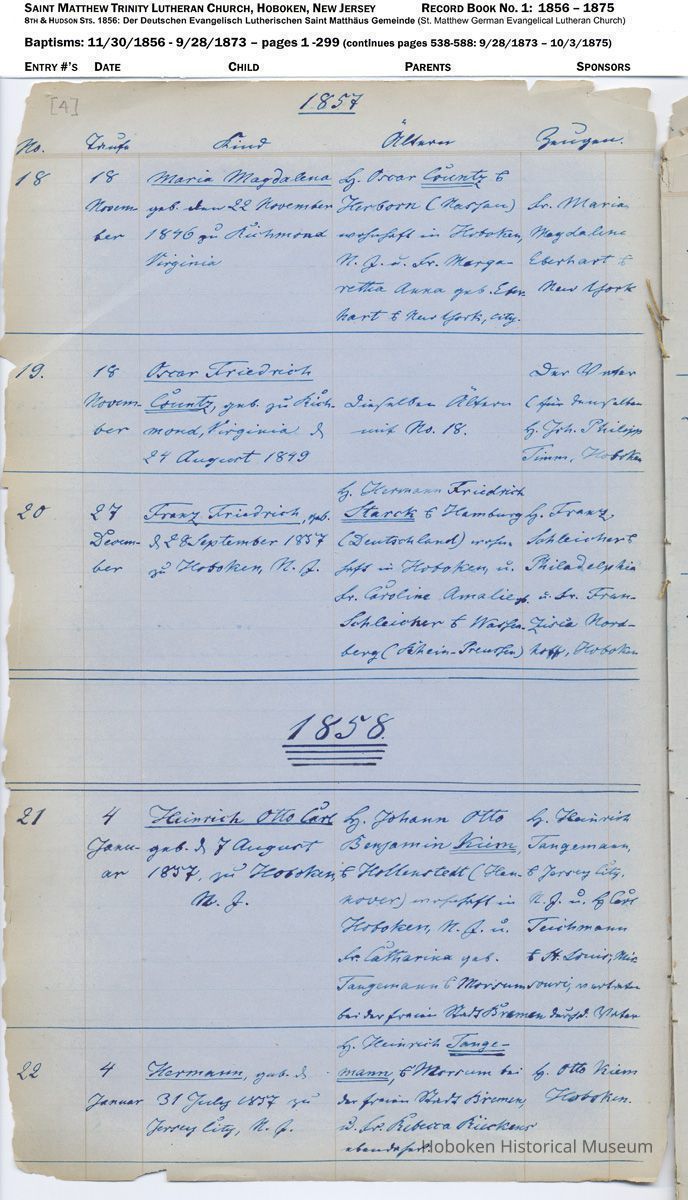 SAINT MATTHEW TRINITY LUTHERAN CHURCH, HOBOKEN, NEW JERSEY RECORD BOOK NO. 1: 1856 – 1875
8TH & HUDSON STS. 1856: Der Deutschen Evangelisch Lutherischen Saint Matthäus Gemeinde (St. Matthew German Evangelical Lutheran Church)
Baptisms: 11/30/1856 - 9/28/1873 – pages 1 -299 (continues pages 538-588: 9/28/1873 – 10/3/1875)
ENTRY #'S DATE CHILD PARENTS SPONSORS
[4]
1857
No. Taufe Kind Ältern Zeugen.
18
18
Novem-
ber
Maria Magdalena
geb. den 22 November
1846 zu Richmond
Virginia
H. Oscar Countz
Herborn (Nassau)
wohnhaft in Hoboken,
N. J. u. Fr. Marga-
retha Anna geb. Eber-
hart New York, city.
Fr. Maria
Magdalena
Eberhart
New York
19.
18
Novem-
ber
Oscar Friedrich
Countz, geb. zu Rich-
mond, Virginia d.
24 August 1849
Dieselben Ältern
mit No. 18.
Der Vater
(für denselben
H. Joh. Philipp
Timm, Hoboken
20
27
Decem-
ber
Franz Friedrich, geb.
d. 28 September 1857
zu Hoboken, N. J.
H. Hermann Friedrich
Starck Hamburg
(Deutschland) wohn-
haft in Hoboken, u.
Fr. Caroline Amalie g.
Schleicher
berg (Rhein-Preussen)
H. Franz
Schleicher
Philadelphia
u. Fr. Fran-
zisca Nord-
hoff, Hoboken
1858.
21
4
Janu-
ar
Heinrich Otto Carl
geb. d. 7 August
1857, zu Hoboken,
N. J.
H. Johann Otto
Benjamin Kiem,
Hollenstedt (Han-
nover) wohnhaft in
Hoboken, N. J. u.
Fr. Catharina geb.
Tangemann Morsum
bei der freien Stadt Bremen
H. Heinrich
Tangemann,
Jersey City,
N. J. u. H. Carl
Teichmann
St. Louis, Mis-
souri, vertreten
durch d. Vater
22
4
Januar
Hermann, geb. d.
31 July 1857 zu
Jersey City, N. J.
H. Heinrich Tange-
mann, Morsum bei
der freien Stadt Bremen,
u. Fr. Rebecca Rückens
ebendaher
H. Otto Kiem
Hoboken.
Hoboken Historical Museum